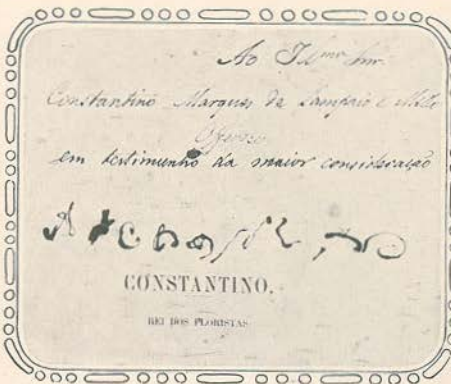 Ao Illmo Snr.
Constantino Marques de Sampaio e Mello
Offerece
em testimunho da maior consideração
CONSTANTINO,
REI DOS FLORISTAS